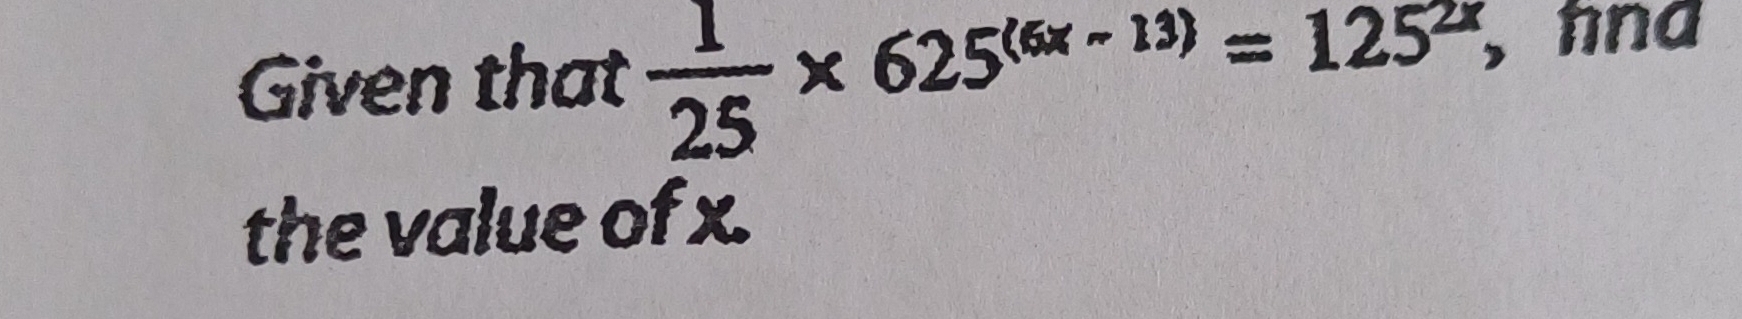 Given that 1/25 × 625^(6x - 13) = 125^2x, find
the value of x.